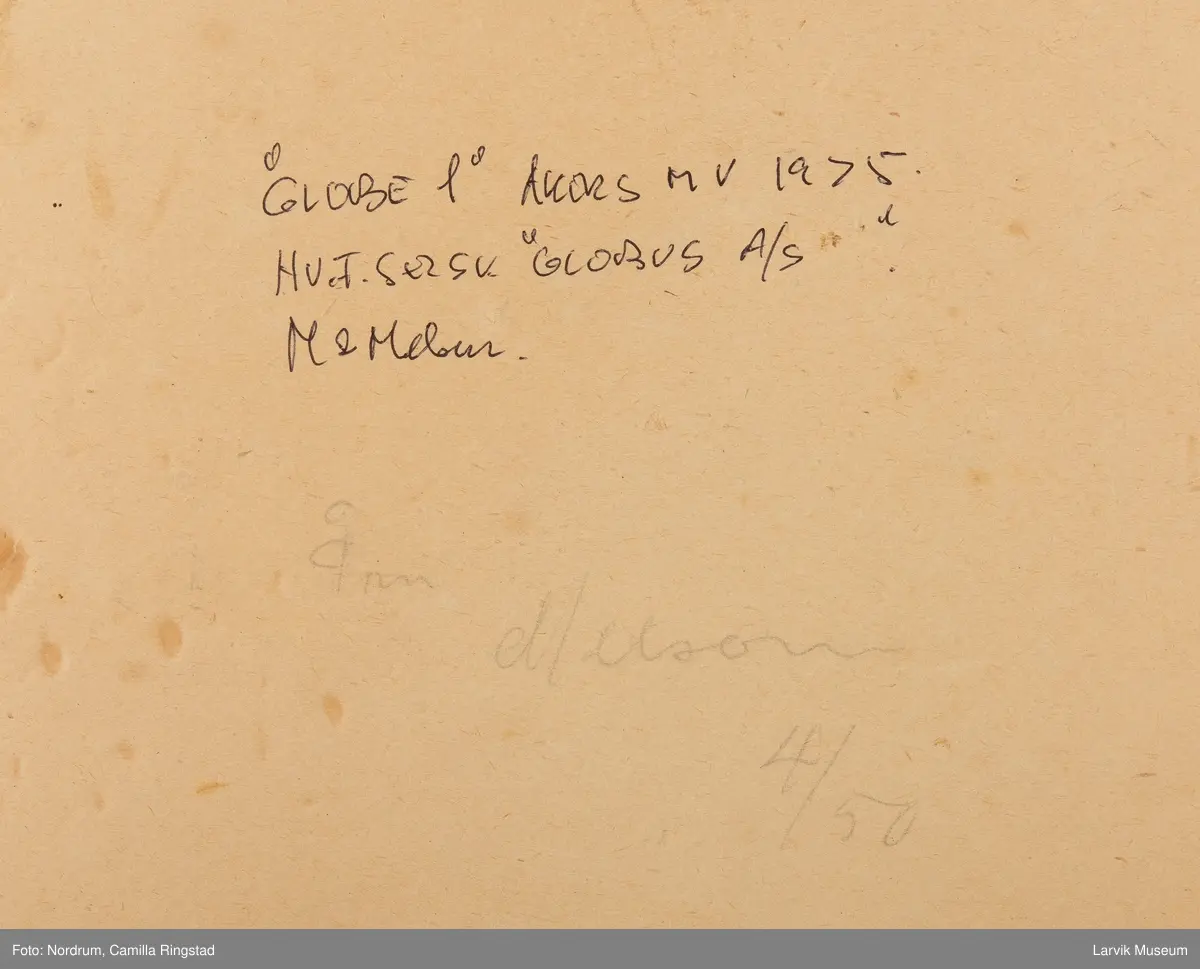 "GLOBE 1" AKERS MV 1925.
HV.F.SELSK "GLOBUS A/S".
M & Melsom.
Ann
d/ elsom
4/50
Foto: Nordrum, Camilla Ringstad
Larvik Museum